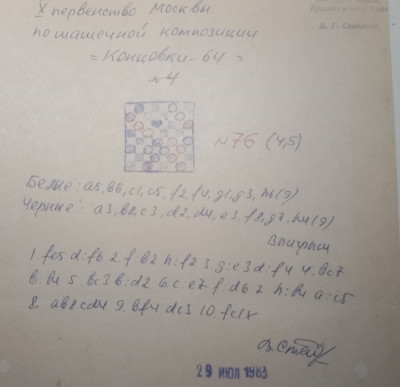 X первенство Москвы
по шашечной композиции
= Концовки-64 =
№4
№76 (4,5)
Белые: a5, b6, c1, c5, f2, f4, g1, g3, h6 (9)
Черные: a3, b8, c3, d2, d4, e3, f8, g7, h4 (9)
Выигрыш
1. fe5 d:f6 2. f:b2 h:f2 3. g:e3 d:f4 4. bc7
b:b4 5. bc3 b:d2 6. c:e7 f:d6 7. h:b4 a:c5
8. ab2 cd4 9. bf4 dc3 10. fc1x
29 ИЮЛ 1983